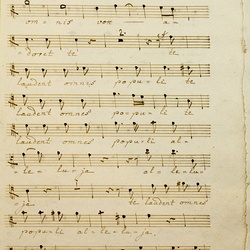 om - nis vox a -
- doret te te
laudent omnes popu - li te
laudent omnes po - pu - li te
laudent omnes popu - li al -
- le - lu - ja al - le - lu -
- ja te laudent omnes
popu - li al - le - lu - ja.